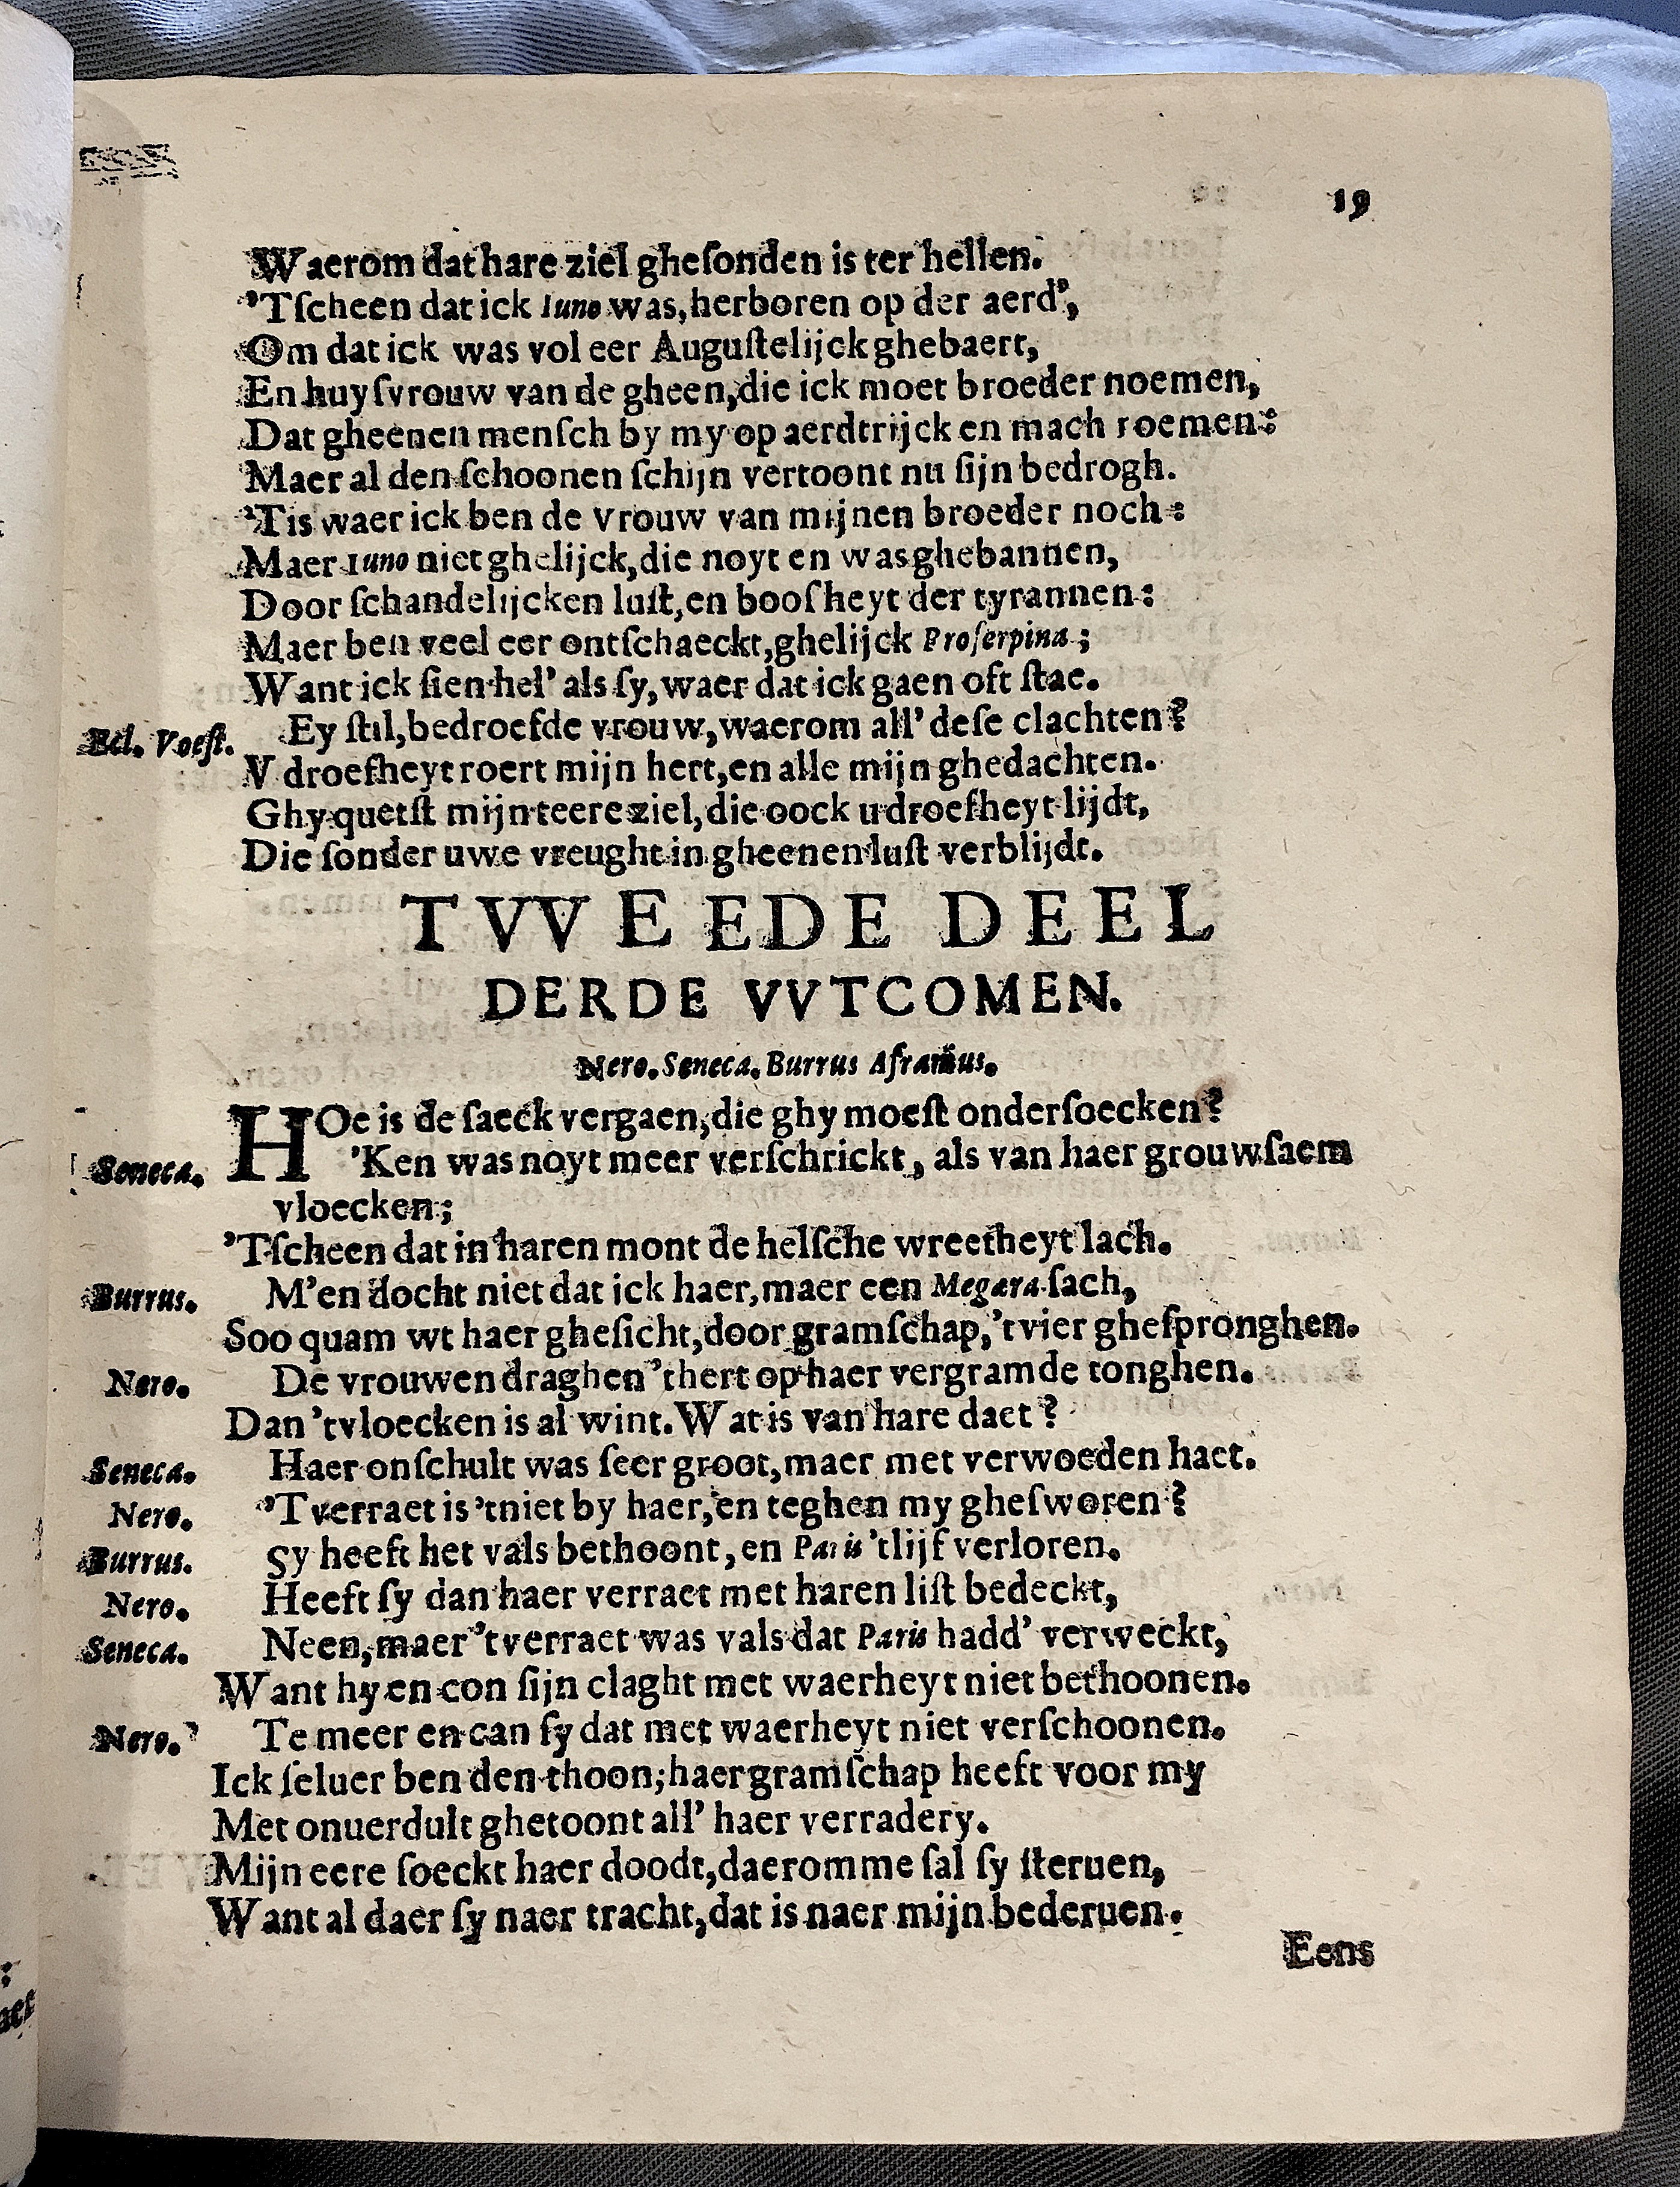 19
Waerom dat hare ziel gheſonden is ter hellen.
'Tſcheen dat ick Iuno was, herboren op der aerd',
Om dat ick was vol eer Auguſtelijck ghebaert,
En huyſvrouw van de gheen, die ick moet broeder noemen,
Dat gheenen menſch by my op aerdtrijck en mach roemen:
Maer al den ſchoonen ſchijn vertoont nu ſijn bedrogh.
'Tis waer ick ben de vrouw van mijnen broeder noch:
Maer Iuno niet ghelijck, die noyt en was ghebannen,
Door ſchandelijcken luſt, en booſheyt der tyrannen:
Maer ben veel eer ontſchaeckt, ghelijck Proſerpina;
Want ick ſien hel' als ſy, waer dat ick gaen oft ſtae.
Bel. Voeſt. Ey ſtil, bedroefde vrouw, waerom all' deſe clachten?
V droefheyt roert mijn hert, en alle mijn ghedachten.
Ghy quetſt mijn teere ziel, die oock u droefheyt lijdt,
Die ſonder uwe vreught in gheenen luſt verblijdt.
TVVEEDE DEEL
DERDE VVTCOMEN.
Nero. Seneca. Burrus Afranius.
HOe is de ſaeck vergaen, die ghy moeſt onderſoecken?
Seneca. 'Ken was noyt meer verſchrickt, als van haer grouwſaem
vloecken;
'Tſcheen dat in haren mont de helſche wreetheyt lach.
Burrus. M'en docht niet dat ick haer, maer een Megæra ſach,
Soo quam wt haer gheſicht, door gramſchap, 'tvier gheſpronghen.
Nero. De vrouwen draghen 'thert op haer vergramde tonghen.
Dan 'tvloecken is al wint. Wat is van hare daet?
Seneca. Haer onſchult was ſeer groot, maer met verwoeden haet.
Nero. 'Tverraet is 'tniet by haer, en teghen my gheſworen?
Burrus. Sy heeft het vals bethoont, en Paris 'tlijf verloren.
Nero. Heeft ſy dan haer verraet met haren liſt bedeckt,
Seneca. Neen, maer 'tverraet was vals dat Paris hadd' verweckt,
Want hy en con ſijn claght met waerheyt niet bethoonen.
Nero. Te meer en can ſy dat met waerheyt niet verſchoonen.
Ick ſeluer ben den thoon; haer gramſchap heeft voor my
Met onuerdult ghetoont all' haer verradery.
Mijn eere ſoeckt haer doodt, daeromme ſal ſy ſteruen,
Want al daer ſy naer tracht, dat is naer mijn bederuen.
Eens